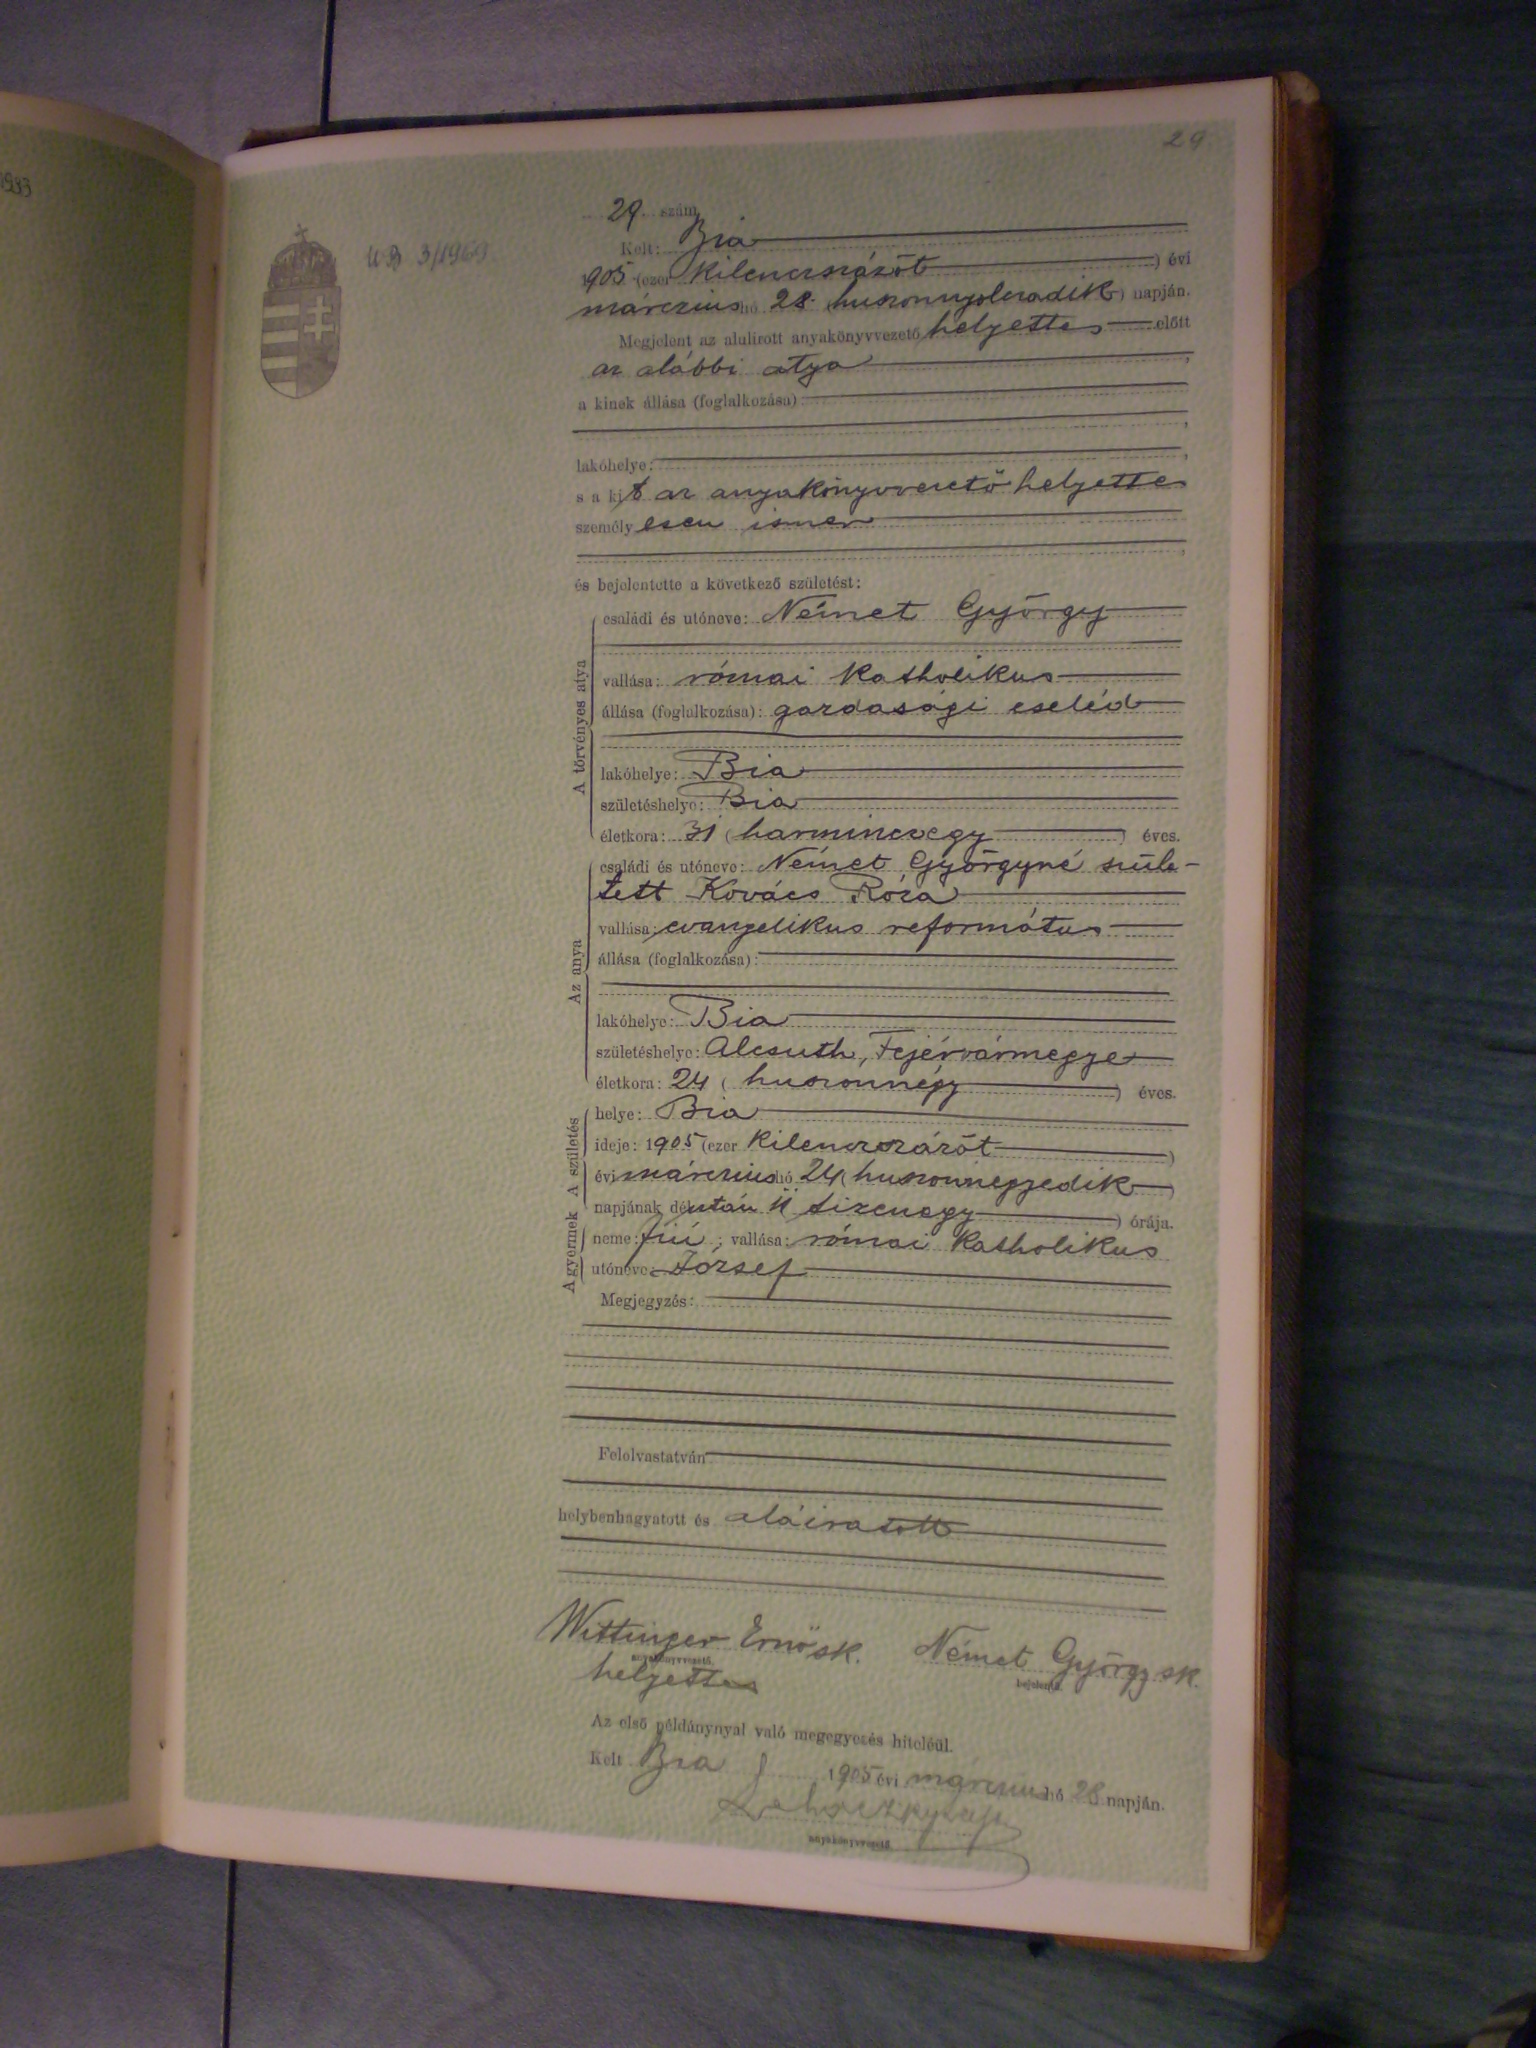 1933
29
U B 3/1969
29. szám
Kelt: Bia
1905 (ezer kilenczszázöt) évi
márczius hó 28 huszonnyolczadik) napján.
Megjelent az alulirott anyakönyvvezető helyettes előtt
az alábbi atya,
a kinek állása (foglalkozása):
lakóhelye:
s a kit az anyakönyvvezető helyettes
személyesen ismer
és bejelentette a következő születést:
A törvényes atya
családi és utóneve: Német György
vallása: római katholikus
állása (foglalkozása): gazdasági cseléd
lakóhelye: Bia
születéshelye: Bia
életkora: 31 (harminczegy) éves.
Az anya
családi és utóneve: Német Györgyné szüle-
tett Kovács Róza
vallása: evangelikus református
állása (foglalkozása):
lakóhelye: Bia
születéshelye: Alcsuth, Fejérvármegye
életkora: 24 (huszonnégy) éves.
A születés
helye: Bia
ideje: 1905 (ezer kilenczszázöt)
évi márczius hó 24 (huszonnegyedik)
napjának délután 11 (tizenegy) órája.
A gyermek
neme: fiú; vallása: római katholikus
utóneve: József
Megjegyzés:
Felolvastatván
helybenhagyatott és aláiratott
Wittinger Ernő sk. Német György sk.
anyakönyvvezető. bejelentő.
helyettes
Az első példánynyal való megegyezés hiteléül.
Kelt Bia 1905 évi márczius hó 28 napján.
anyakönyvvezető.